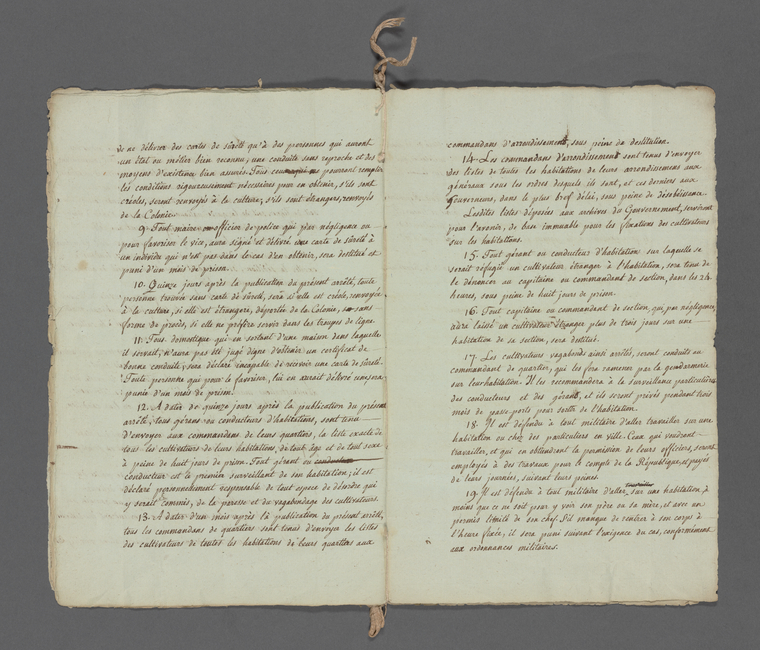 de ne délivrer des cartes de sûreté qu'à des personnes qui auront
un état ou métier bien reconnu, une conduite sans reproche et des
moyens d'existence bien assurés. Tous ceux qui ne pourront remplir
les conditions rigoureusement nécessaires pour en obtenir, s'ils sont
créols, seront renvoyés à la culture; s'ils sont étrangers, renvoyés
de la Colonie.
9. Tout maire ou officier de police qui par négligence ou
pour favoriser le vice, aura signé et délivré une carte de sûreté à
un individu qui n'est pas dans le cas d'en obtenir, sera destitué et
puni d'un mois de prison.
10. Quinze jours après la publication du présent arrêté, toute
personne trouvée sans carte de sûreté, sera si elle est créole, renvoyée
à la culture, si elle est étrangère, déportée de la Colonie, sans
forme de procès, si elle ne préfère servir dans les troupes de ligne.
11. Tous domestique qui en sortant d'une maison dans laquelle
il servait, n'aura pas été jugé digne d'obtenir un certificat de
bonne conduite, sera déclaré incapable de recevoir une carte de sûreté.
Toute personne qui pour le favoriser, lui en aurait délivré un, sera
punie d'un mois de prison.
12. A dater de quinze jours après la publication du présent
arrêté, tous gérans ou conducteurs d'habitations, sont tenu
d'envoyer aux commandans de leurs quartiers, la liste exacte de
tous les cultivateurs de leurs habitations, de tout âge et de tout sexe
à peine de huit jours de prison. Tout gérant ou conducteur
conducteur est le premier surveillant de son habitation; il est
déclaré personnellement responsable de tout espece de désordre qui
y serait commis, de la paresse et du vagabondage des cultivateurs.
13. A dater d'un mois après la publication du présent arrêté,
tous les commandans de quartiers sont tenus d'envoyer les listes
des cultivateurs de toutes les habitations de leurs quartiers aux
commandans d'arrondissement, sous peine de destitution.
14. Les commandans d'arrondissement sont tenus d'envoyer
des listes de toutes les habitations de leurs arrondissemens aux
généraux sous les ordres desquels ils sont, et ces derniers aux
Gouverneurs, dans le plus bref délai, sous peine de désobéissance.
Lesdites listes déposées aux archives du Gouvernement, serviront
pour l'avenir, de base immuable pour les fixations des cultivateurs
sur les habitations.
15. Tout gérant ou conducteur d'habitation sur laquelle se
serait réfugié un cultivateur étranger à l'habitation, sera tenu de
le dénoncer au capitaine ou commandant de section, dans les 24.
heures, sous peine de huit jours de prison.
16. Tout capitaine ou commandant de section, qui, par négligence,
aura laissé un cultivateur étranger plus de trois jours sur une
habitation de sa section, sera destitué.
17. Les cultivateurs vagabonds ainsi arrêtés, seront conduits au
commandant de quartier, qui les fera ramener par la gendarmerie
sur leur habitation. Il les recommandera à la surveillance particulière
des conducteurs et des gérans, et ils seront privés pendant trois
mois de passe-ports pour sortir de l'habitation.
18. Il est défendu à tout militaire d'aller travailler sur une
habitation ou chez des particuliers en ville. Ceux qui voudront
travailler, et qui en obtiendront la permission de leurs officiers, seront
employés à des travaux pour le compte de la République, et payés
de leurs journées, suivant leurs peines.
19. Il est défendu à tout militaire d'aller, sur une habitation, à
moins que ce ne soit pour y voir son père ou sa mère, et avec un
permis limité de son chef. S'il manque de rentrer à son corps à
l'heure fixée, il sera puni suivant l'exigence du cas, conformément
aux ordonnances militaires.